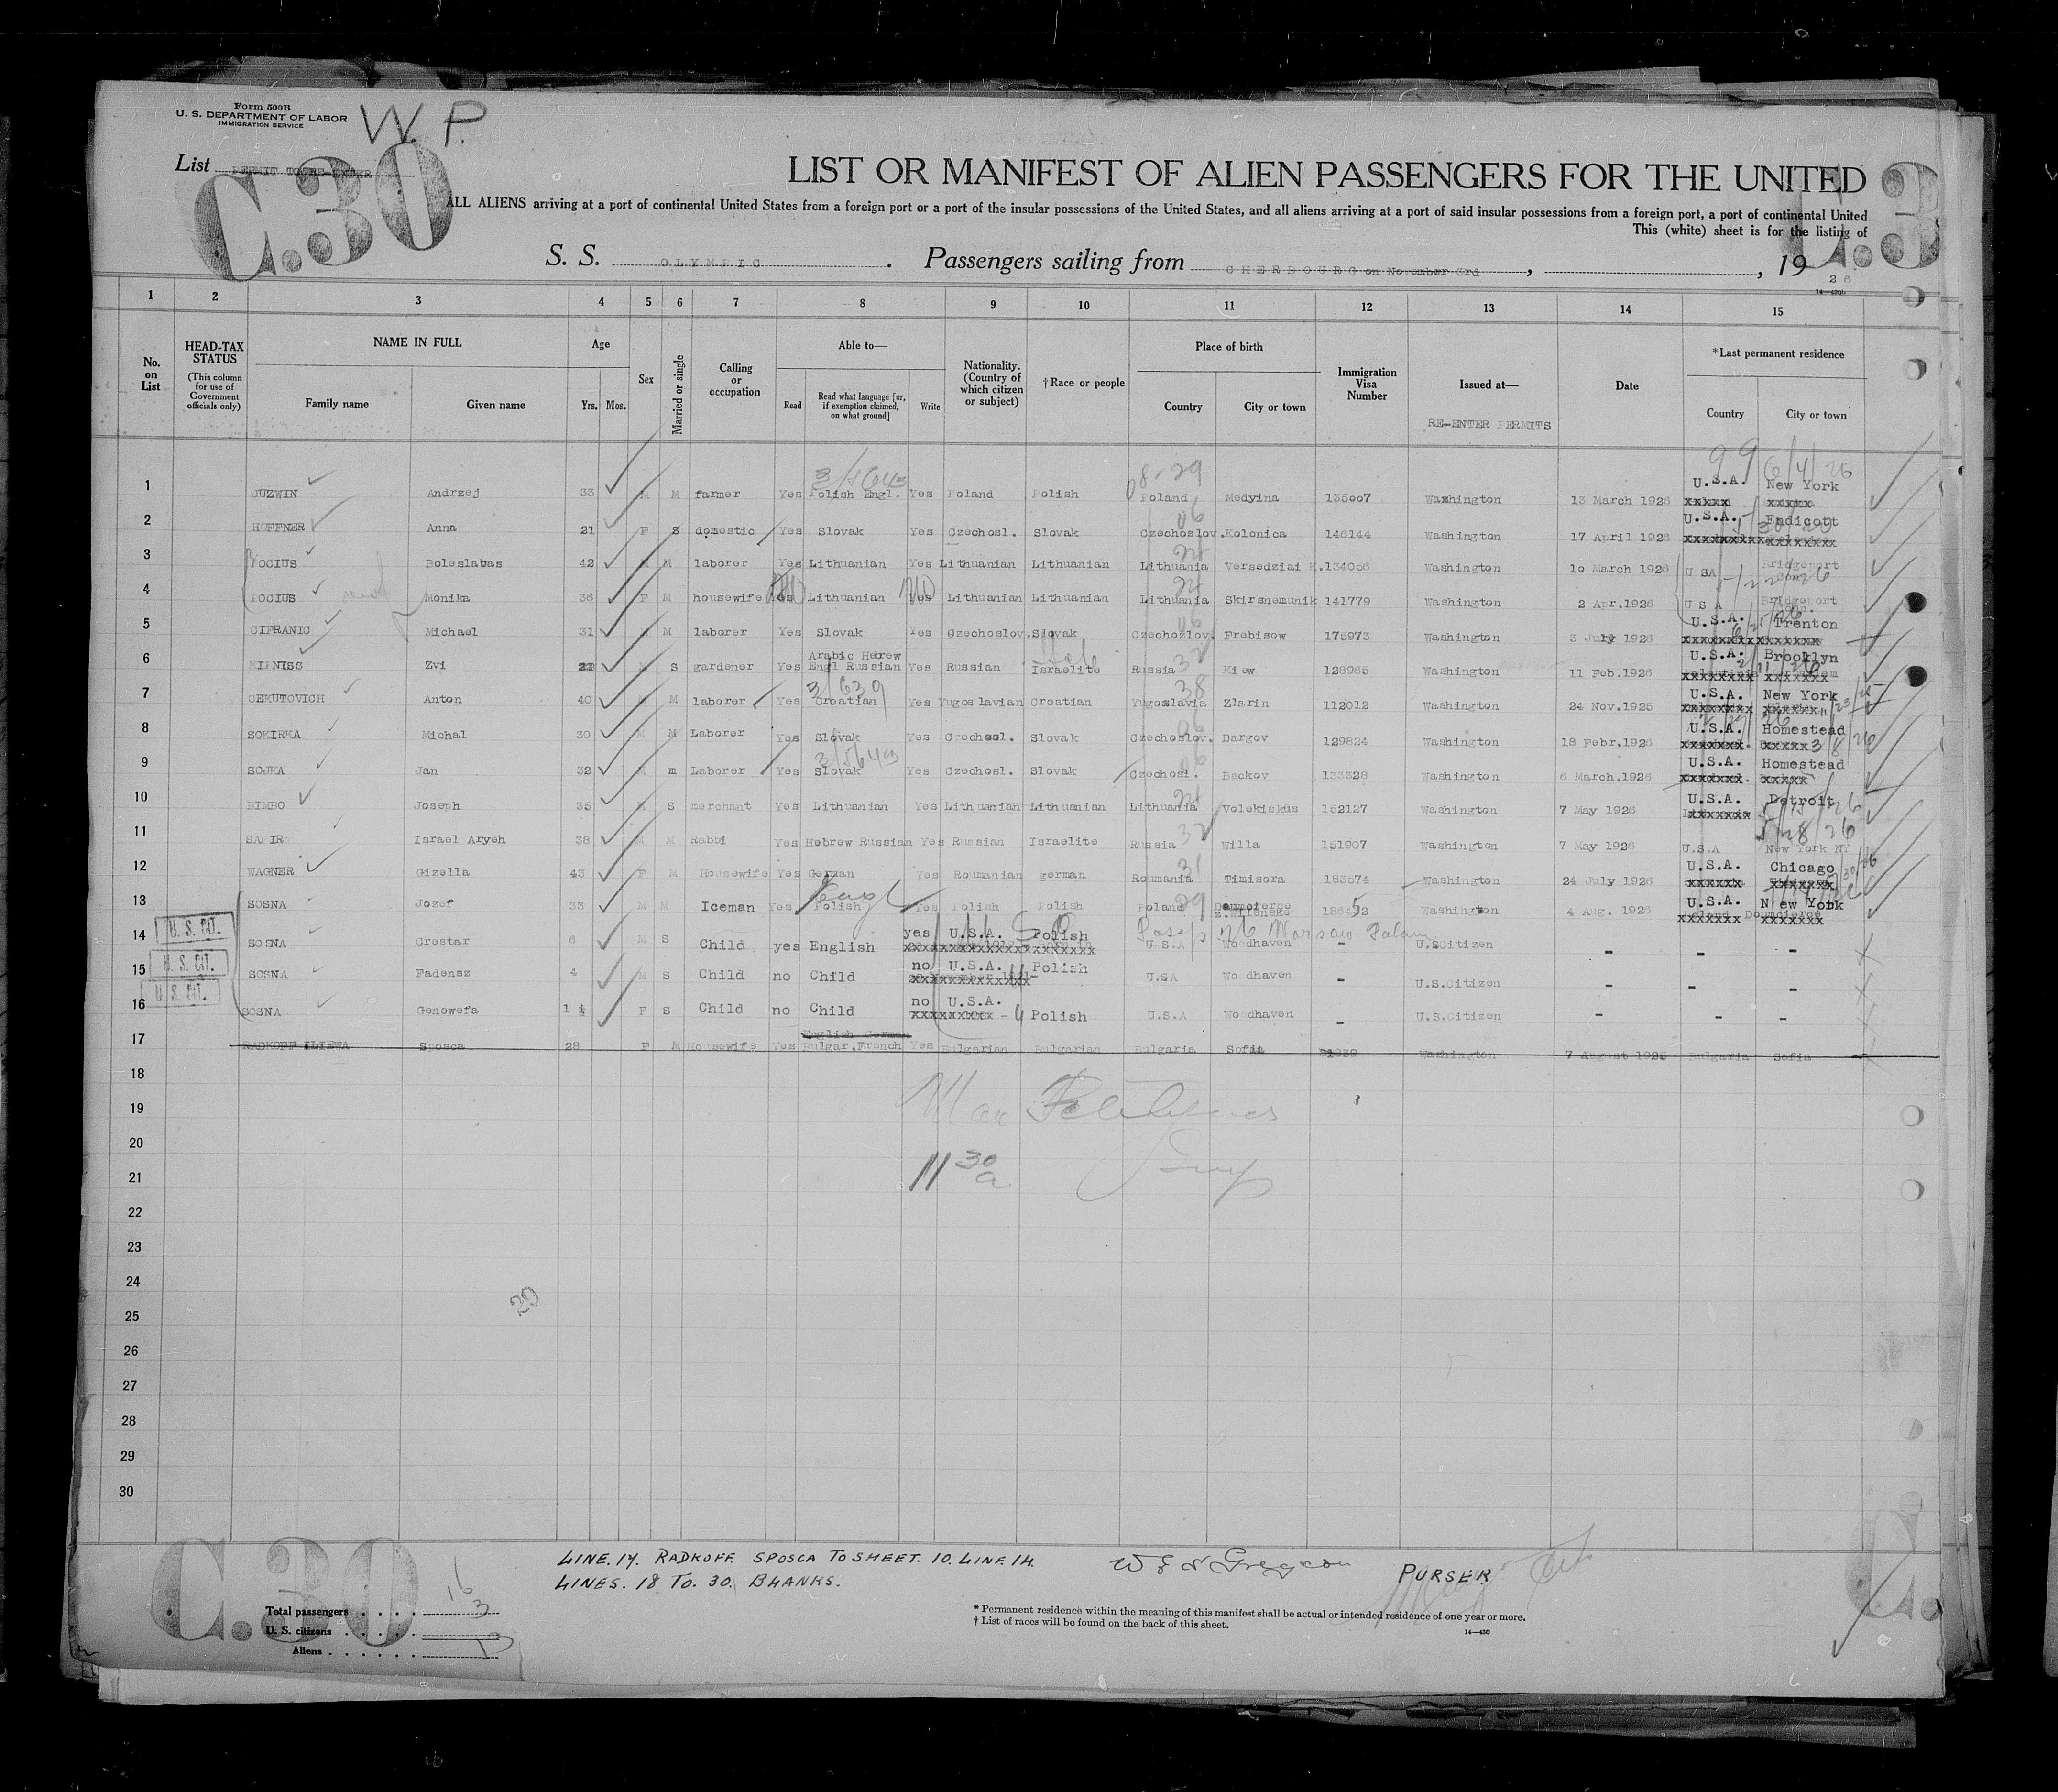 Form 500B
U. S. DEPARTMENT OF LABOR
IMMIGRATION SERVICE
W. P.
List PERMIT TO RE-ENTER
C.30
LIST OR MANIFEST OF ALIEN PASSENGERS FOR THE UNITED
C.3
ALL ALIENS arriving at a port of continental United States from a foreign port or a port of the insular possessions of the United States, and all aliens arriving at a port of said insular possessions from a foreign port, a port of continental United
This (white) sheet is for the listing of
S. S. OLYMPIC. Passengers sailing from CHERBOURG on November 3rd, , 19 26
1 2 3 4 5 6 7 8 9 10 11 12 13 14 15
No. on List
HEAD-TAX STATUS (This column for use of Government officials only)
NAME IN FULL Family name Given name
Age Yrs. Mos.
Sex
Married or single
Calling or occupation
Able to— Read Read what language [or, if exemption claimed, on what ground] Write
Nationality. (Country of which citizen or subject)
† Race or people
Place of birth Country City or town
Immigration Visa Number
Issued at— RE-ENTER PERMITS
Date
*Last permanent residence Country City or town
1 JUZWIN Andrzej 33 M M farmer Yes Polish Engl. Yes Poland Polish Poland Medyina 135007 Washington 13 March 1926 U.S.A. New York
2 HOFFNER Anna 21 F S domestic Yes Slovak Yes Czechosl. Slovak Czechoslov. Kolonica 146144 Washington 17 April 1926 U.S.A. Endicott
3 POCIUS Boleslabas 42 M M laborer Yes Lithuanian Yes Lithuanian Lithuanian Lithuania Versedziai K. 134056 Washington 10 March 1926 U SA Bridgeport Conn.
4 POCIUS Monika 36 F M housewife Yes Lithuanian Yes Lithuanian Lithuanian Lithuania Skirsnemunik 141779 Washington 2 Apr.1926 U S A Bridgeport Conn.
5 CIFRANIC Michael 31 M M laborer Yes Slovak Yes Czechoslov. Slovak Czechoslov. Frebisow 175973 Washington 3 July 1926 U.S.A. Trenton
6 KIPNISS Zvi 22 M S gardener Yes Arabic Hebrew Engl Russian Yes Russian Israelite Russia Kiew 128965 Washington 11 Feb.1926 U.S.A. Brooklyn
7 CEKUTOVICH Anton 40 M M laborer Yes Croatian Yes Yugoslavian Croatian Yugoslavia Zlarin 112012 Washington 24 Nov.1925 U.S.A. New York
8 SOKIRKA Michal 30 M M Laborer Yes Slovak Yes Czechosl. Slovak Czechoslov. Dargov 129824 Washington 18 Febr.1926 U.S.A. Homestead
9 SOJKA Jan 32 M m Laborer Yes Slovak Yes Czechosl. Slovak Czechosl. Backov 133328 Washington 6 March.1926 U.S.A. Homestead
10 BIMBO Joseph 35 M S merchant Yes Lithuanian Yes Lithuanian Lithuanian Lithuania Volekiskus 152127 Washington 7 May 1926 U.S.A. Detroit
11 SAFIR Israel Aryeh 38 M M Rabbi Yes Hebrew Russian Yes Russian Israelite Russia Willa 151907 Washington 7 May 1926 U.S.A New York NY
12 WAGNER Gizella 43 F M Housewife Yes German Yes Roumanian german Roumania Timisora 183574 Washington 24 July 1926 U.S.A. Chicago
13 SOSNA Jozef 33 M M Iceman Yes Polish Yes Polish Polish Poland Washington 4 Aug. 1926 U.S.A. New York
U. S. CIT. 14 SOSNA Crestar 6 M S Child yes English yes U.S.A. Polish U.S.A Woodhaven - U.SCitizen - - -
U. S. CIT. 15 SOSNA Fadensz 4 M S Child no Child no U.S.A. Polish U.SA Woodhaven - U.S.Citizen - - -
U. S. CIT. 16 SOSNA Genowefa 1 ½ F S Child no Child no U.S.A. Polish U.S.A Woodhaven - U.S.Citizen - - -
17 RADKOFF ILIEWA Sposca 28 F M Housewife Yes English German Bulgar.French Yes Bulgarian Bulgarian Bulgaria Sofia Washington 7 August 1925 Bulgaria Sofia
18
19
20
21 11 30 a
22
23
24
25
26
27
28
29
30
C.30
LINE. 17. RADKOFF SPOSCA TO SHEET. 10. LINE 14.
LINES. 18 TO. 30. BLANKS.
PURSER
Total passengers . . . . . 16
U. S. citizens . . . . . 3
Aliens . . . . . . 13
* Permanent residence within the meaning of this manifest shall be actual or intended residence of one year or more.
† List of races will be found on the back of this sheet.
14—430